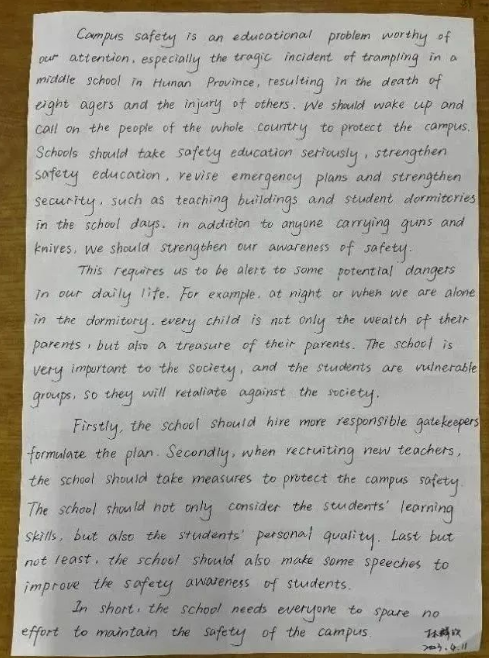 Campus safety is an educational problem worthy of
our attention, especially the tragic incident of trampling in a
middle school in Hunan Province, resulting in the death of
eight agers and the injury of others. We should wake up and
call on the people of the whole country to protect the campus.
Schools should take safety education seriously, strengthen
safety education, revise emergency plans and strengthen
security, such as teaching buildings and student dormitories
in the school days. in addition to anyone carrying guns and
knives, we should strengthen our awareness of safety.
This requires us to be alert to some potential dangers
in our daily life. For example. at night or when we are alone
in the dormitory. every child is not only the wealth of their
parents, but also a treasure of their parents. The school is
very important to the society, and the students are vulnerable
groups, so they will retaliate against the society.
Firstly, the school should hire more responsible gatekeepers
formulate the plan. Secondly, when recruiting new teachers,
the school should take measures to protect the campus safety.
The school should not only consider the students' learning
skills, but also the students' personal quality. Last but
not least, the school should also make some speeches to
improve the safety awareness of students.
In short, the school needs everyone to spare no
effort to maintain the safety of the campus
2023.4.11